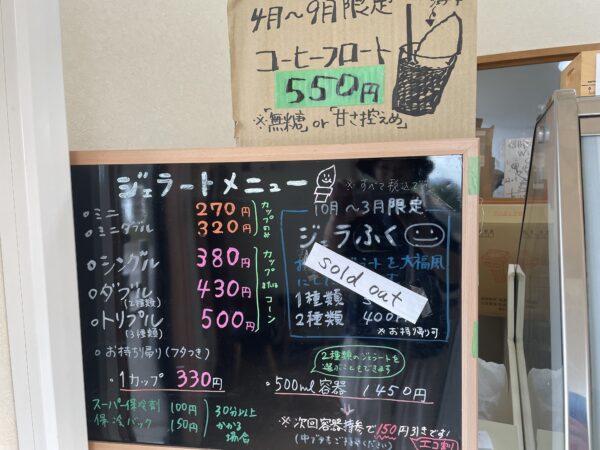 4月~9月限定
コーヒーフロート
550円
※「無糖」or「甘さ控えめ」
ジェラートメニュー
※すべて税込です
ミニ 270円
ミニダブル 320円
カップのみ
シングル 380円
ダブル 430円
(2種類)
トリプル 500円
(3種類)
カップまたはコーン
10月~3月限定
ジェラふく
sold out
1種類
2種類 400円
※お持ち帰り可
お持ち帰り(フタつき)
1カップ 330円
スーパー保冷剤 100円
保冷バック 150円
30分以上かかる場合
2種類のジェラートを
選ぶこともできます
500ml容器 1450円
※次回容器持参で150円引きです!
エコ割